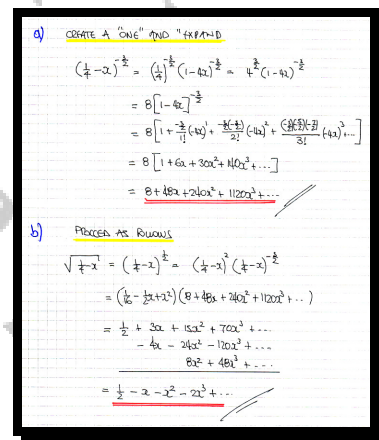 a) CREATE A "ONE" AND "EXPAND
(1/4 - x)^(-3/2) = (1/4)^(-3/2) (1-4x)^(-3/2) = 4^(3/2) (1-4x)^(-3/2)
= 8[1-4x]^(-3/2)
= 8[1 + (-3/2)/1! (-4x)^1 + (-3/2)(-5/2)/2! (-4x)^2 + (-3/2)(-5/2)(-7/2)/3! (-4x)^3 ...]
= 8[1 + 6x + 30x² + 140x³ + ...]
= 8 + 48x + 240x² + 1120x³ + ...
b) PROCEED AS FOLLOWS
√(1/4 - x) = (1/4 - x)^(1/2) = (1/4 - x)^2 (1/4 - x)^(-3/2)
= (1/16 - 1/2x + x²)(8 + 48x + 240x² + 1120x³ + ...)
= 1/2 + 3x + 15x² + 70x³ + ...
- 4x - 24x² - 120x³ + ...
8x² + 48x³ + ...
= 1/2 - x - x² - 2x³ + ...